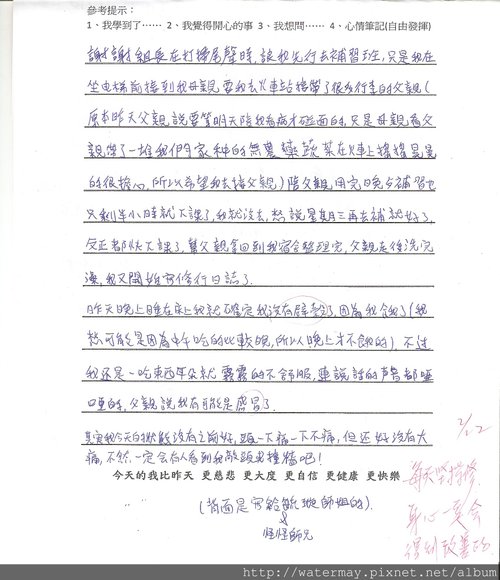 參考提示：
1、我學到了…… 2、我覺得開心的事 3、我想問…… 4、心情筆記(自由發揮)
謝謝組長在打掃尾聲時，讓我先行去補習班，只是我在
坐電梯前接到我母親要我去火車站接帶了很多行李的父親(
原本昨天父親說要等明天陪我看病才碰面的，只是母親看父
親帶了一堆我們家種的無農藥蔬菜在火車上搖搖晃晃
的很擔心，所以希望我去接父親)陪父親用完晚占補習也
只剩半小時就下課了，我就沒去，想說星期三再去補就好了，
反正都快下課了，幫父親拿回到我宿舍整理完，父親走後洗完
澡，我又開始寫修行日誌了.
昨天晚上睡在床上我就確定我沒有胖了，因為我餓了(我
想可能是因為中午吃的比較晚，所以晚上才不餓的)，不過
我還是一吃東西耳朵就霧霧的不舒服，連說話的声音都啞
啞的，父親說我有可能是感冒了.
其實我今天的狀態沒有之前好，頭一下痛一下不痛，但還好沒有大
痛，不然一定會有人看到我敲頭或撞牆吧！
今天的我比昨天 更慈悲 更大度 更自信 更健康 更快樂
(背面是寫給毓璇師姐的)
怪怪師兄
2/22
每天堅持修
身心一定会
得到改善的
http://watermay.pixnet.net/album